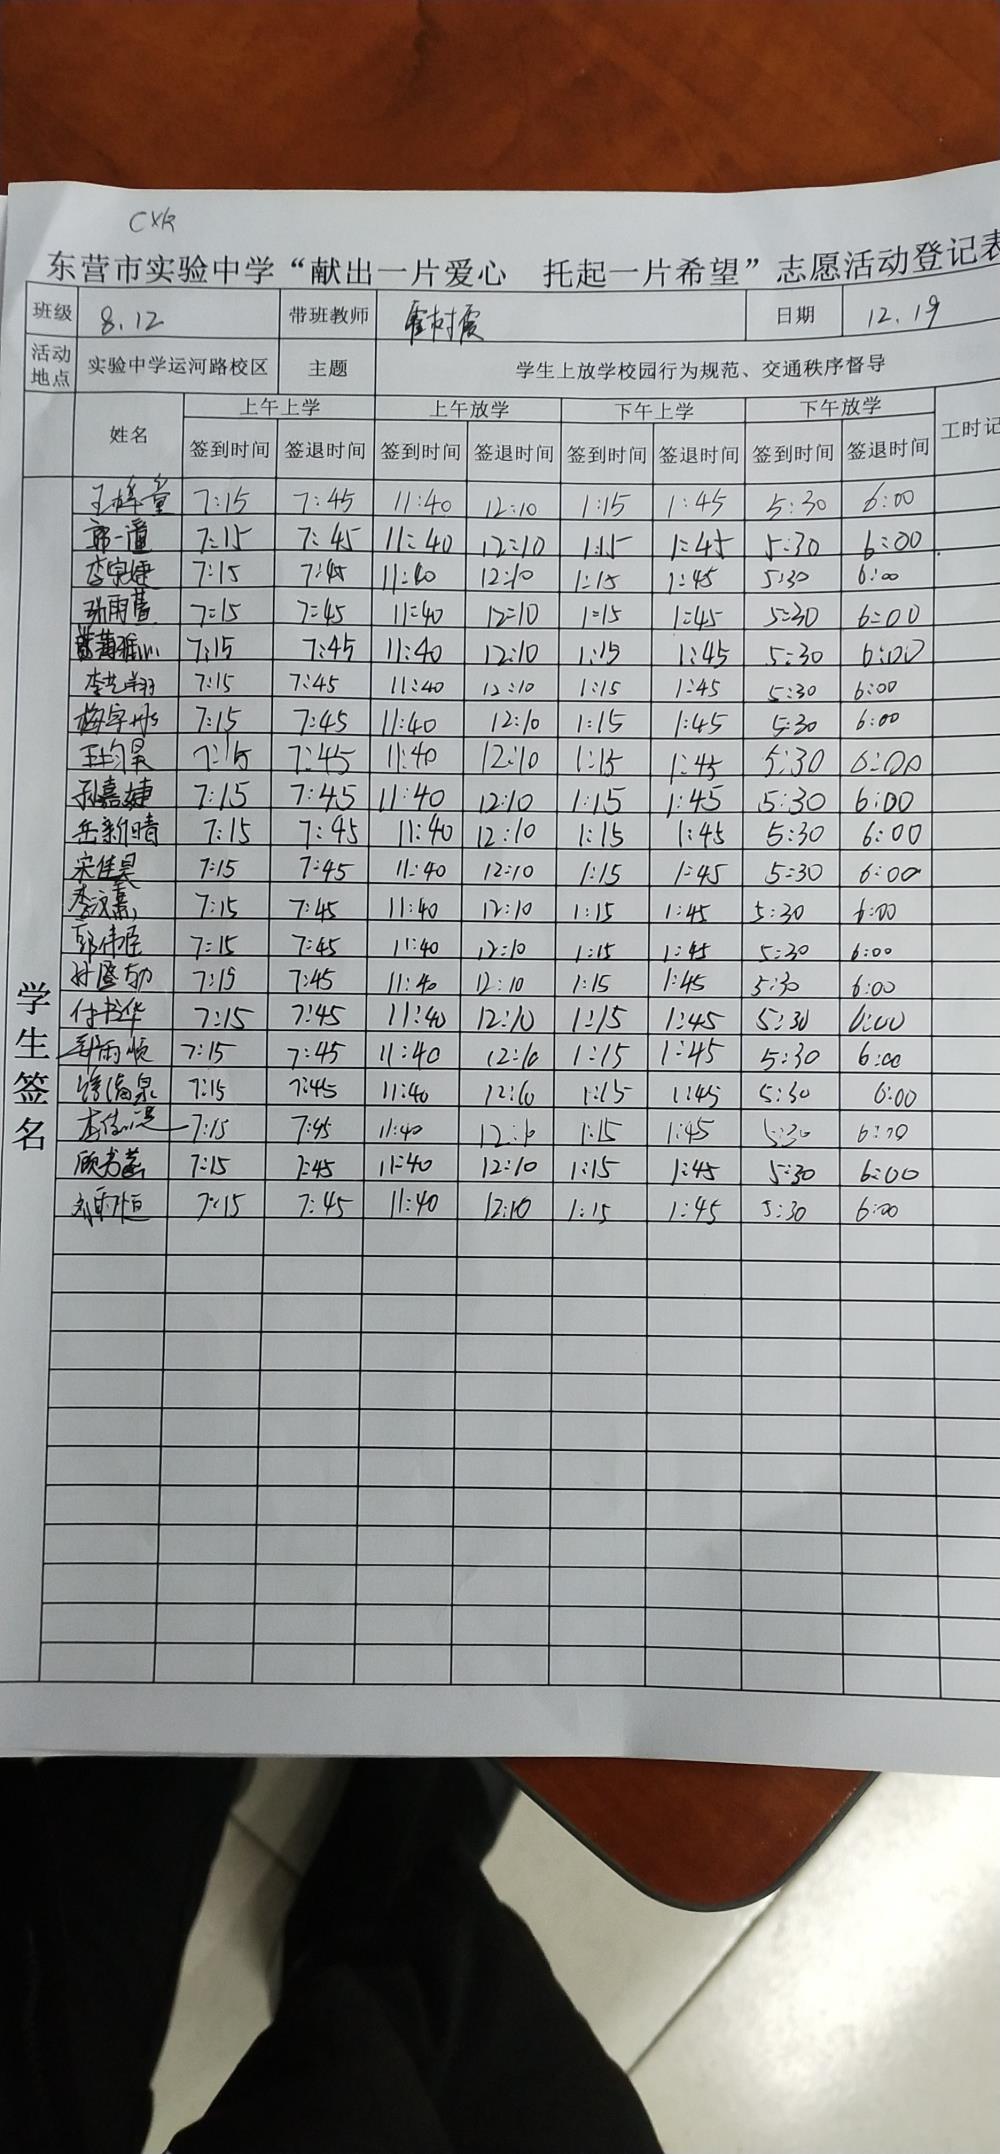 CXK
东营市实验中学“献出一片爱心 托起一片希望”志愿活动登记表
班级 8.12 带班教师 霍树震 日期 12.19
活动地点 实验中学运河路校区 主题 学生上放学校园行为规范、交通秩序督导
上午上学 上午放学 下午上学 下午放学
姓名 签到时间 签退时间 签到时间 签退时间 签到时间 签退时间 签到时间 签退时间 工时记
学生签名
王梓童 7:15 7:45 11:40 12:10 1:15 1:45 5:30 6:00
郭一潼 7:15 7:45 11:40 12:10 1:15 1:45 5:30 6:00
李宗婕 7:15 7:45 11:40 12:10 1:15 1:45 5:30 6:00
张雨萱 7:15 7:45 11:40 12:10 1:15 1:45 5:30 6:00
7:15 7:45 11:40 12:10 1:15 1:45 5:30 6:00
李艺翔 7:15 7:45 11:40 12:10 1:15 1:45 5:30 6:00
梅宇彤 7:15 7:45 11:40 12:10 1:15 1:45 5:30 6:00
王均昊 7:15 7:45 11:40 12:10 1:15 1:45 5:30 6:00
孙嘉婕 7:15 7:45 11:40 12:10 1:15 1:45 5:30 6:00
岳新晴 7:15 7:45 11:40 12:10 1:15 1:45 5:30 6:00
宋佳昊 7:15 7:45 11:40 12:10 1:15 1:45 5:30 6:00
李汶熹 7:15 7:45 11:40 12:10 1:15 1:45 5:30 6:00
郭伟臣 7:15 7:45 11:40 12:10 1:15 1:45 5:30 6:00
7:15 7:45 11:40 12:10 1:15 1:45 5:30 6:00
付书华 7:15 7:45 11:40 12:10 1:15 1:45 5:30 6:00
7:15 7:45 11:40 12:10 1:15 1:45 5:30 6:00
7:15 7:45 11:40 12:10 1:15 1:45 5:30 6:00
7:15 7:45 11:40 12:10 1:15 1:45 5:30 6:00
顾书菡 7:15 7:45 11:40 12:10 1:15 1:45 5:30 6:00
刘雨恒 7:15 7:45 11:40 12:10 1:15 1:45 5:30 6:00